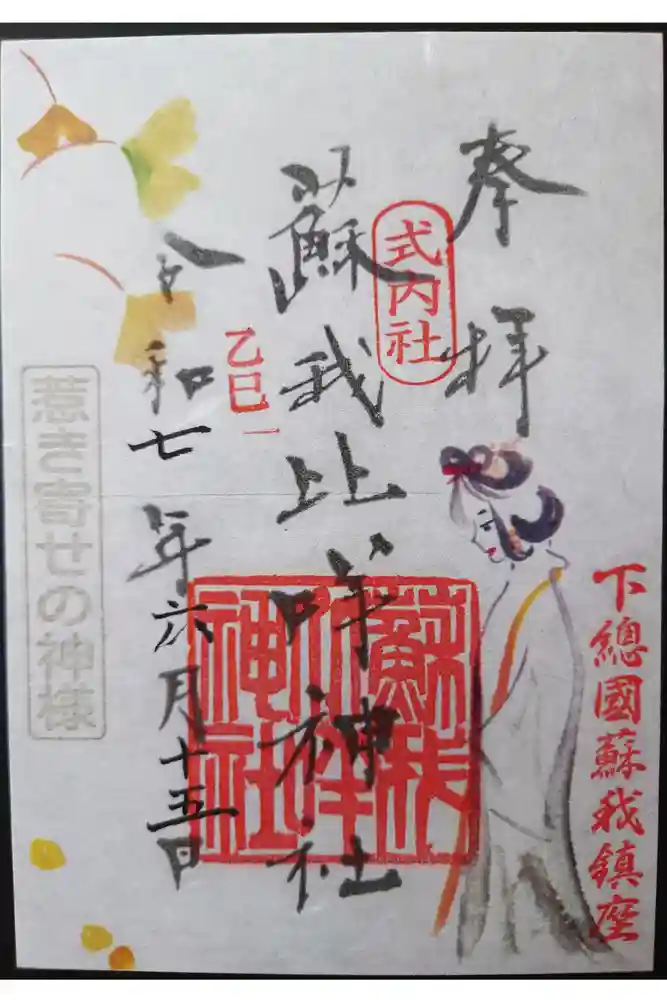 奉拝
下總國蘇我鎮座
式内社
蘇我比咩神社
乙巳一
蘇我比咩神社
令和七年六月十五日
惹き寄せの神様